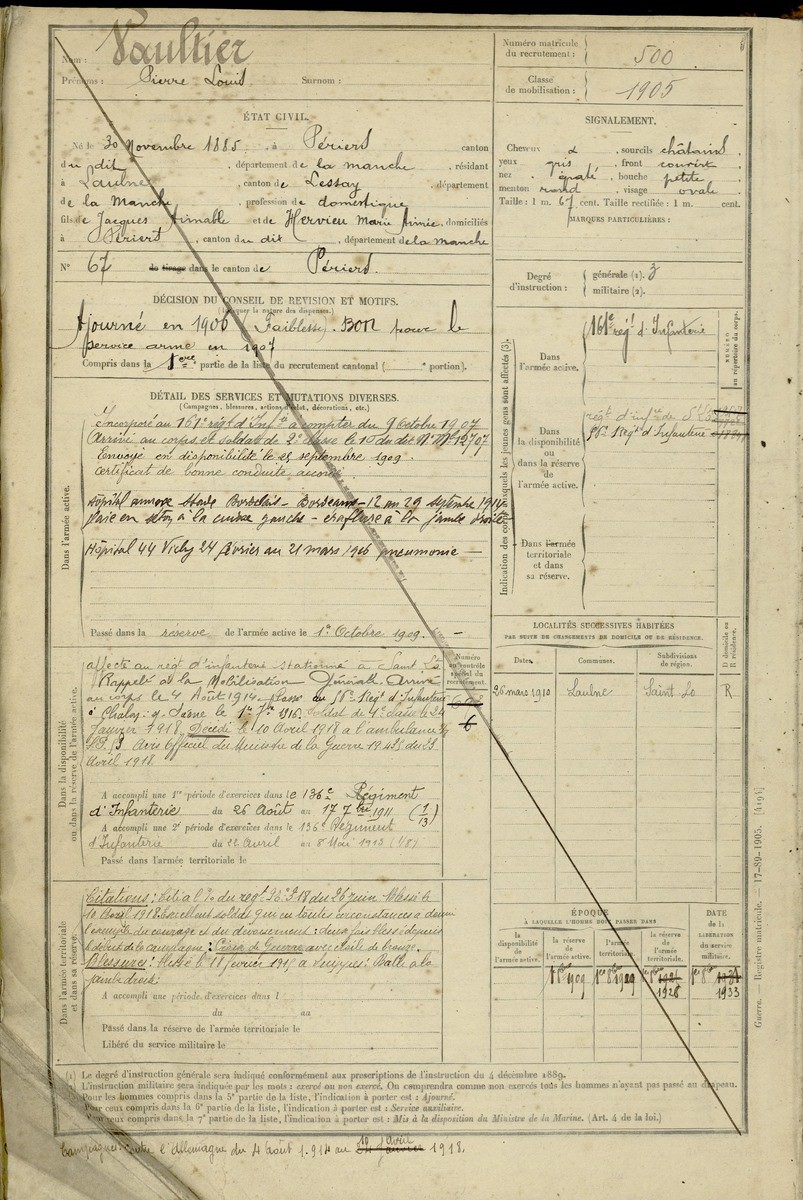 Nom : Vaultier
Prénoms : Pierre Louis Surnom :
Numéro matricule du recrutement : 500
Classe de mobilisation : 1905
ÉTAT CIVIL.
Né le 30 Novembre 1885, à Périers canton
du dit, département de la manche, résidant
à Laulne, canton de Lessay, département
de la Manche, profession de domestique
fils de Jacques Aimable et de Hervieu Marie Aimée, domiciliés
à Périers, canton du dit, département de la manche
N° 67 de tirage dans le canton de Périers.
SIGNALEMENT.
Cheveux et, sourcils châtains.
yeux gris, front couvert
nez, bouche petite
menton rond, visage ovale
Taille : 1 m. 67 cent. Taille rectifiée : 1 m. cent.
MARQUES PARTICULIÈRES :
Degré d'instruction : générale (1). 3
militaire (2).
DÉCISION DU CONSEIL DE REVISION ET MOTIFS.
(Indiquer la nature des dispenses.)
Ajourné en 1906 (Faiblesse). Bon pour le
service armé en 1907
Compris dans la 1ère partie de la liste du recrutement cantonal ( portion).
DÉTAIL DES SERVICES ET MUTATIONS DIVERSES.
(Campagnes, blessures, actions d'éclat, décorations, etc.)
Dans l'armée active.
Incorporé au 161e régt d'Infie à compter du 9 Octobre 1907
Arrivé au corps et soldat de 2e classe le
Envoyé en disponibilité le 25 septembre 1909.
Certificat de bonne conduite accordé.
Hôpital annexe Stade Bordelais - Bordeaux - 12 au 29 septembre 1914
Plaie en séton à la cuisse gauche - éraflure à la jambe droite
Hôpital 44 Vichy 24 février au 21 mars 1916 pneumonie
Passé dans la réserve de l'armée active le 1er Octobre 1909.
Indication des corps auxquels les jeunes gens sont affectés (3).
NUMÉRO au répertoire du corps.
Dans l'armée active. 161e régt d'Infanterie
Dans la disponibilité ou dans la réserve de l'armée active.
régt d'infie de St Lo
56e Regt d'Infanterie
Dans l'armée territoriale et dans sa réserve.
LOCALITÉS SUCCESSIVES HABITÉES
PAR SUITE DE CHANGEMENTS DE DOMICILE OU DE RÉSIDENCE.
Dates. Communes. Subdivisions de région. D domicile ou R résidence.
26 mars 1910 Laulne Saint-Lo R
Dans la disponibilité ou dans la réserve de l'armée active.
Numéro au contrôle spécial du recrutement.
affecté au régt d'infanterie stationné à Saint Lô
Rappelé à la Mobilisation Générale. Arrivé
au corps le 4 Août 1914. Passé au 56e Regt d'Infanterie
à Chalon s/ Saone le 1er 1916. Soldat de 1e classe le 24
Janvier 1918. Décédé le 10 Avril 1918 à l'ambulance
Avis Officiel du Ministre de la Guerre du 23
Avril 1918.
A accompli une 1re période d'exercices dans le 136e Régiment
d'Infanterie du 26 Août au 17 7bre 1911 (1/13)
A accompli une 2e période d'exercices dans le 136e Régiment
d'Infanterie du 22 Avril au 8 Mai 1913
Passé dans l'armée territoriale le
Dans l'armée territoriale et dans sa réserve.
Citations : Cité à l'o. du regt du 26 juin. Blessé le
10 Avril 1918. Excellent soldat qui en toutes circonstances a donné
l'exemple du courage et du dévouement : deux fois blessé depuis
le début de la campagne : Croix de Guerre avec étoile de bronze.
Blessures : Blessé le 11 février 1915 à : Balle à la
jambe droite.
A accompli une période d'exercices dans l
du au
Passé dans la réserve de l'armée territoriale le
Libéré du service militaire le
ÉPOQUE
À LAQUELLE L'HOMME DOIT PASSER DANS
la disponibilité de l'armée active. la réserve de l'armée active. l'armée territoriale. la réserve de l'armée territoriale.
DATE de la LIBÉRATION du service militaire.
1er 8bre 1909
1926
1933
(1) Le degré d'instruction générale sera indiqué conformément aux prescriptions de l'instruction du 4 décembre 1889.
(2) L'instruction militaire sera indiquée par les mots : exercé ou non exercé. On comprendra comme non exercés tous les hommes n'ayant pas passé au drapeau.
Pour les hommes compris dans la 5e partie de la liste, l'indication à porter est : Ajourné.
Pour ceux compris dans la 6e partie de la liste, l'indication à porter est : Service auxiliaire.
Pour ceux compris dans la 7e partie de la liste, l'indication à porter est : Mis à la disposition du Ministre de la Marine. (Art. 4 de la loi.)
Campagnes contre l'Allemagne du 4 août 1914 au 10 avril 1918.
Guerre. — Registre matricule. — 17-89-1905. [4194]